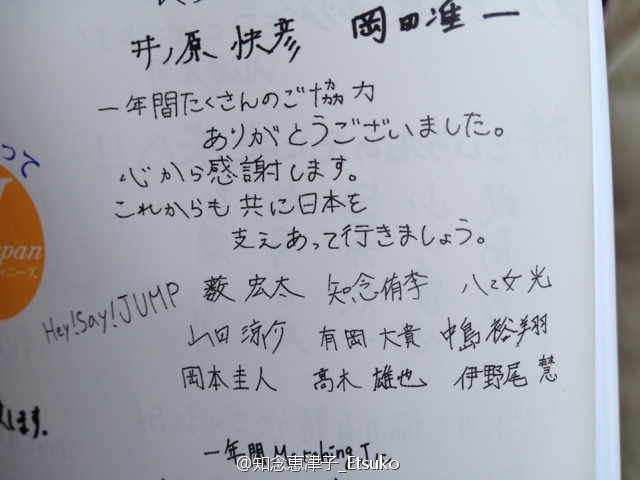 井ノ原 快彦 岡田准一
一年間たくさんのご協力
ありがとうございました。
心から感謝します。
これからも共に日本を
支えあって行きましょう。
Hey!Say!JUMP 薮 宏太 知念侑李 八乙女 光
山田 涼介 有岡 大貴 中島 裕翔
岡本圭人 高木 雄也 伊野尾 慧
って
Japan
ニーズ
します。
一年間 Marching J
@知念恵津子_Etsuko